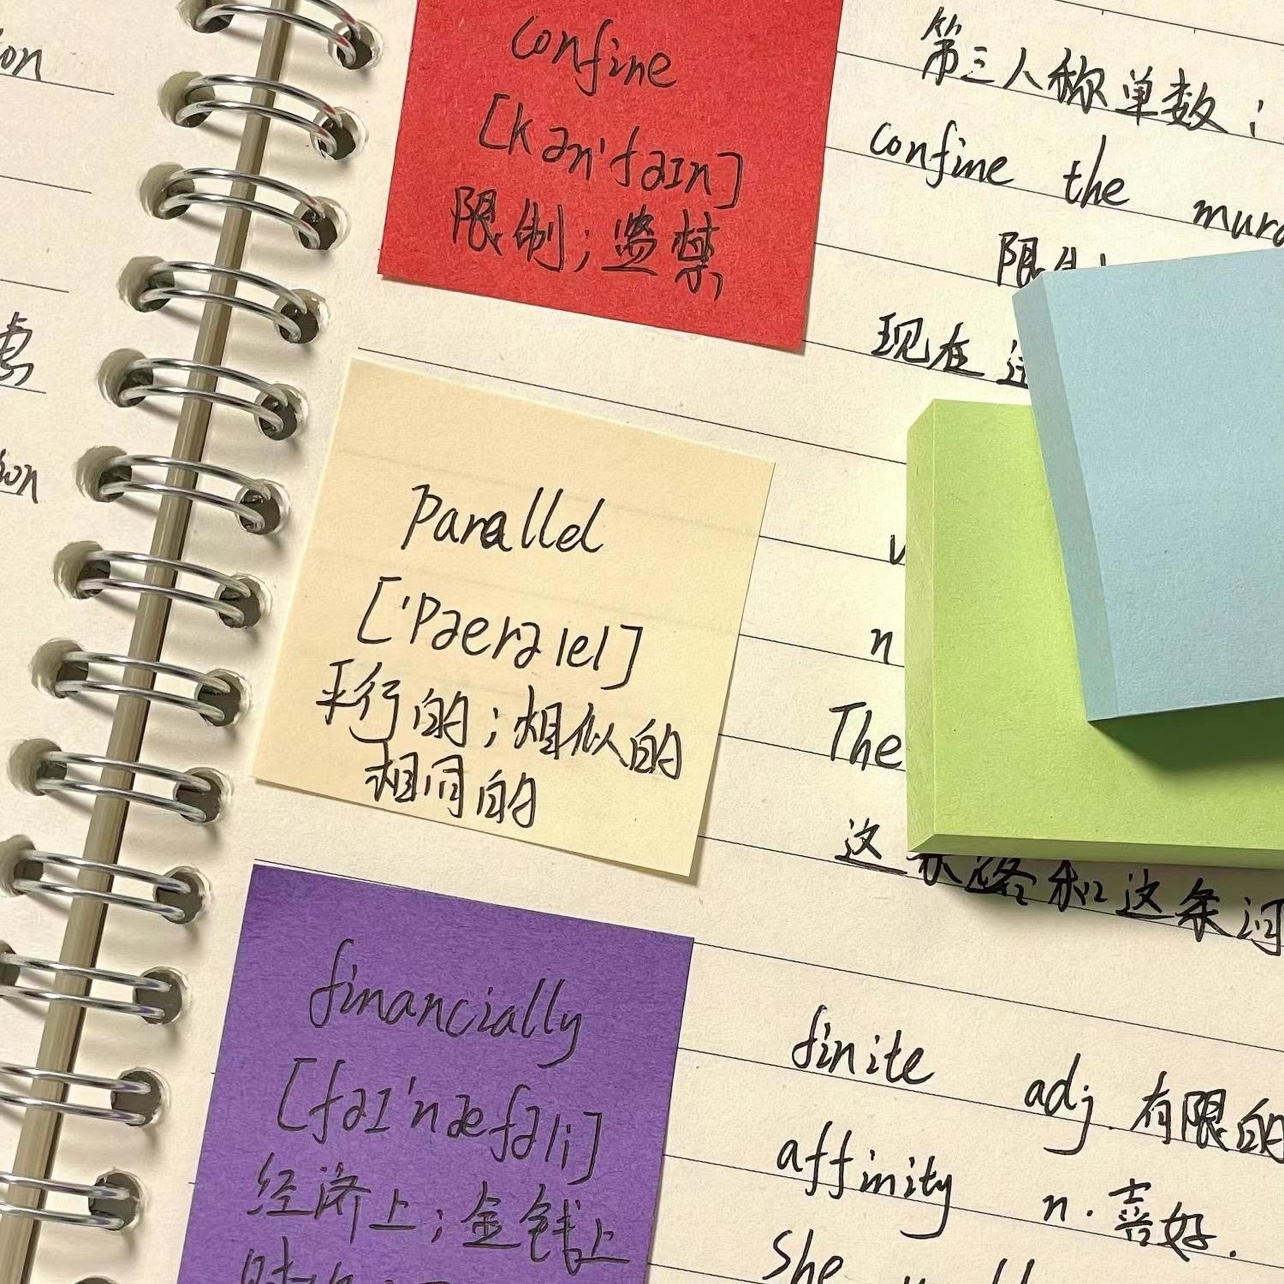 confine
[kən'faɪn]
限制；监禁
第三人称单数：
confine the
限制
现在
parallel
['pærəlel]
平行的；相似的
相同的
n
The
这条路和这条河
financially
[faɪ'næʃəli]
经济上；金钱上
finite adj. 有限的
affinity n. 喜好.
She